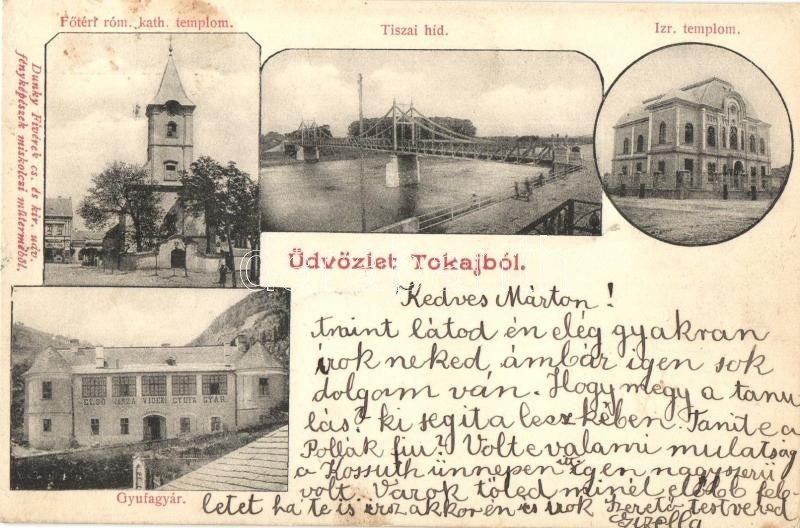 Főtéri róm. kath. templom.
Tiszai híd.
Izr. templom.
Dunky Fivérek cs. és kir. udv.
fényképészek miskolczi műterméből.
Üdvözlet Tokajból.
ELSŐ HANZA VIDÉKI GYUFA GYÁR
Gyufagyár.
Kedves Márton!
Amint látod én elég gyakran
irok neked, ámbár igen sok
dolgom van. Hogy megy a tanu
lás? ki segit a leszkében. Tanit e a
Pollák fiu? Volt e valami mulatság
a Kossuth ünnepen itt igen nagyszerü
volt. Várok töled minél elöbb fele
letet ha te is irsz akkor én is irok Szeretö testvered
Gizella